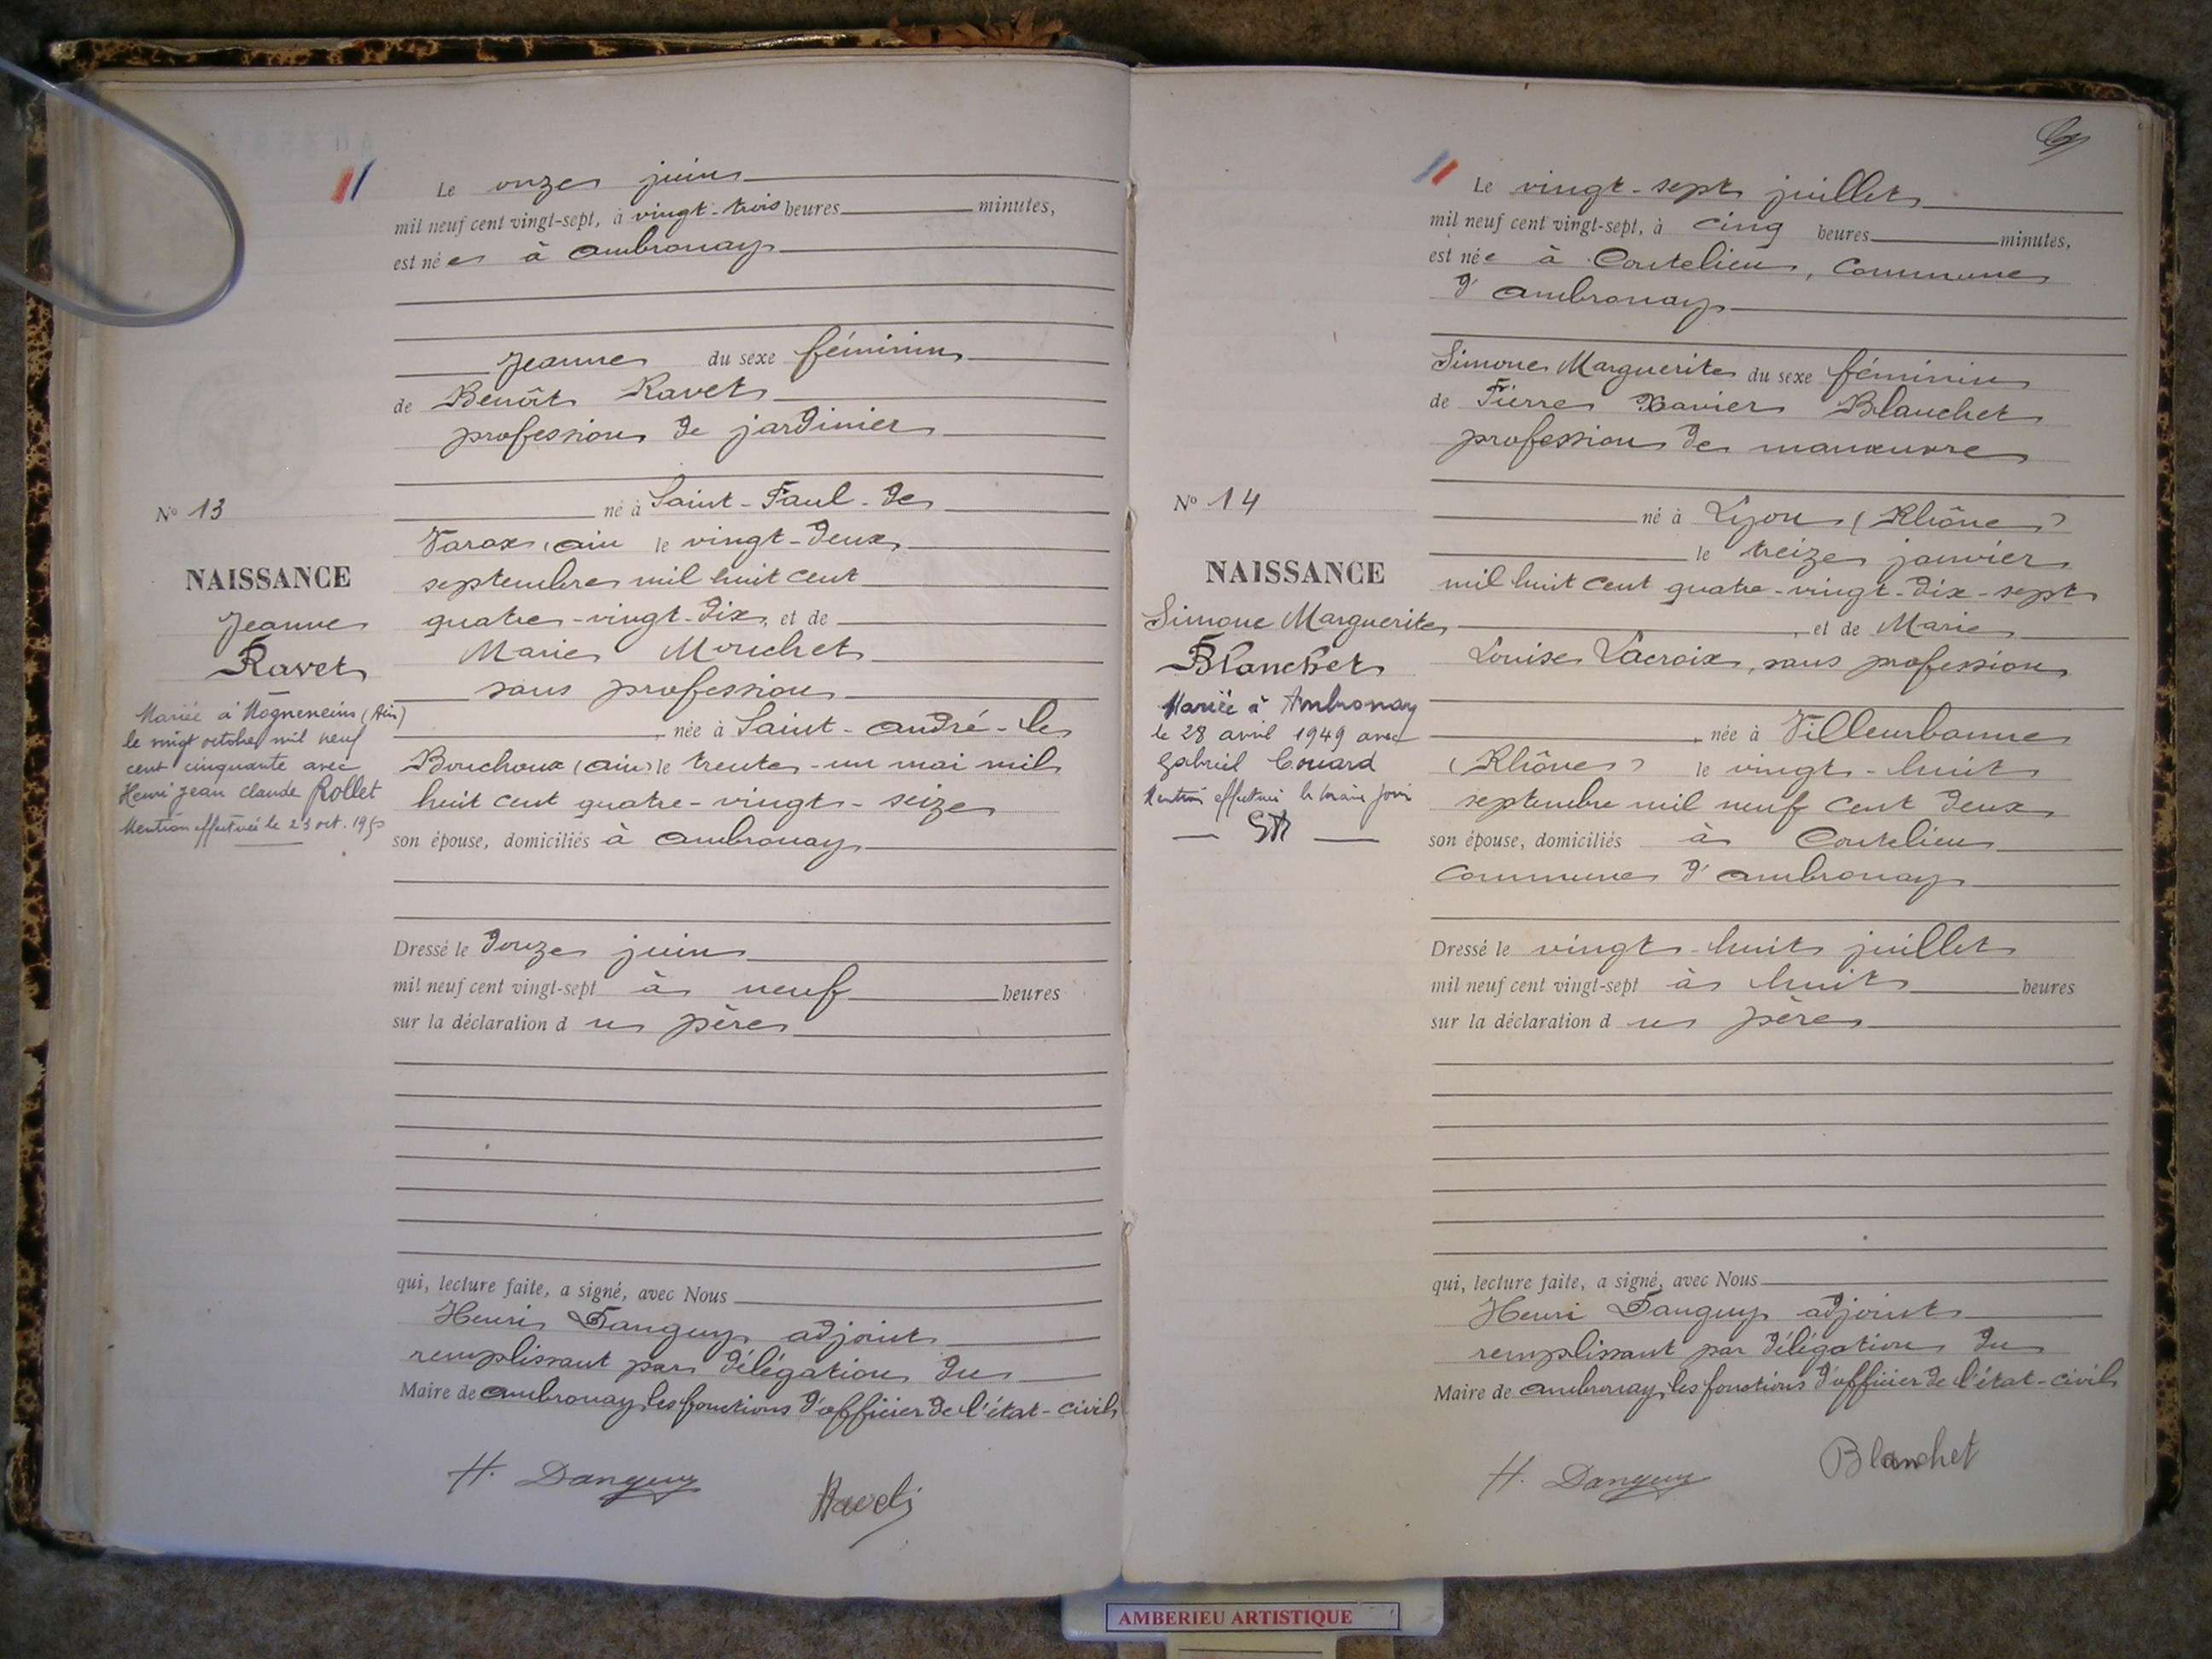 Le onze juin
mil neuf cent vingt-sept, à vingt-trois heures minutes,
est née à Ambronay
Jeanne du sexe féminin
de Benoît Ravet
profession de jardinier
né à Saint-Paul-de
Varax (Ain le vingt-deux
septembre mil huit cent
quatre-vingt-dix, et de
Marie Mouchet
sans profession
née à Saint-André-le
Bouchoux (Ain) le trente-un mai mil
huit cent quatre-vingt-seize
son épouse, domiciliés à Ambronay
Dressé le douze juin
mil neuf cent vingt-sept à neuf heures
sur la déclaration du père
qui, lecture faite, a signé, avec Nous
Henri Danguy adjoint
remplissant par délégation du
Maire de Ambronay les fonctions d'officier de l'état-civil
H. Danguy
Ravet
N° 13
NAISSANCE
Jeanne
Ravet
Mariée à Mogneneins (Ain)
le vingt octobre mil neuf
cent cinquante avec
Henri Jean Claude Rollet
Mention effectuée le 23 oct. 1950
Le vingt-sept juillet
mil neuf cent vingt-sept, à cinq heures minutes,
est née à Coutelieu, commune
d'Ambronay
Simone Marguerite du sexe féminin
de Pierre Xavier Blanchet
profession de manœuvre
né à Lyon (Rhône)
le treize janvier
mil huit cent quatre-vingt-dix-sept
, et de Marie
Louise Lacroix, sans profession
, née à Villeurbanne
(Rhône) le vingt-huit
septembre mil neuf cent deux
son épouse, domiciliés à Coutelieu
commune d'Ambronay
Dressé le vingt-huit juillet
mil neuf cent vingt-sept à huit heures
sur la déclaration du père
qui, lecture faite, a signé, avec Nous
Henri Danguy adjoint
remplissant par délégation du
Maire de Ambronay les fonctions d'officier de l'état-civil
H. Danguy
Blanchet
N° 14
NAISSANCE
Simone Marguerite
Blanchet
Mariée à Ambronay
le 28 avril 1949 avec
Gabriel Couard
Mention effectuée le même jour
AMBERIEU ARTISTIQUE